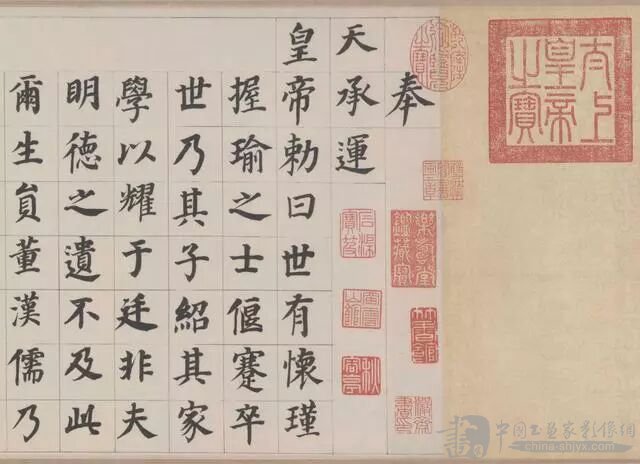 太上
皇帝
之寶
奉
天承運
皇帝勅曰世有懷瑾
握瑜之士偃蹇卒
世乃其子紹其家
學以耀于廷非夫
明德之遺不及此
爾生員董漢儒乃
樂壽堂
鑑藏寶
書
中國書画家影像網
china-shjyx.com